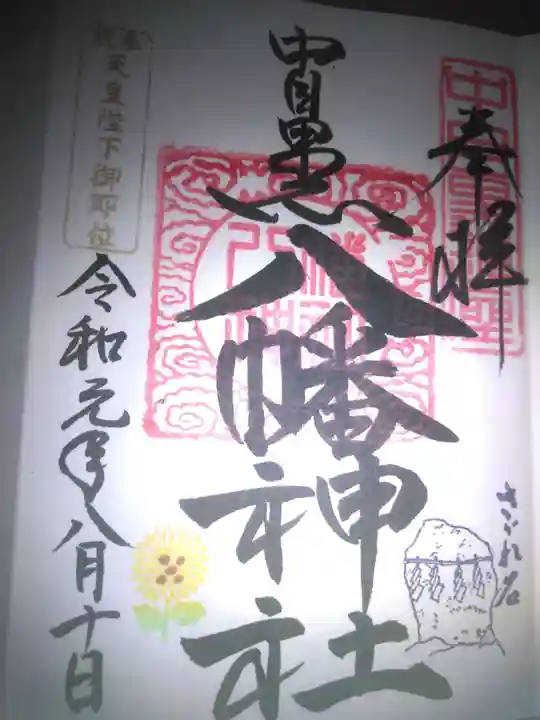 奉拝
中目黒八幡神社
奉祝 天皇陛下御即位
令和元年八月十日
さざれ石